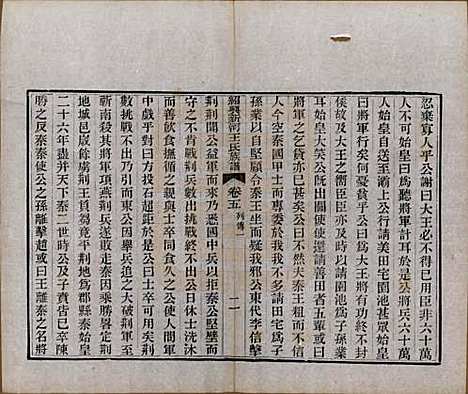 忍棄寡人乎公謝曰大王必不得已用臣非六十萬
人不可始皇曰爲聽將軍計耳於是公將兵六十萬
始皇自送至灞上公行請美田宅園池甚眾始皇
曰將軍行矣何憂貧乎公曰爲大王將有功終不封
侯故及大王之嚮臣臣亦及時以請園池爲子孫業
耳始皇大笑公既出關使使還請善田者五輩或曰
將軍之乞貸亦已甚矣公曰不然夫秦王怚而不信
人今空秦國甲士而專委於我我不多請田宅爲子
孫業以自堅顧令秦王坐而疑我邪公東代李信擊
紹興新河王氏族譜
卷五
列傳
二
荆荆聞公益軍而來乃悉國中兵以拒秦公堅壁而
守之不肯戰荆兵數出挑戰終不出公日休士洗沐
而善飲食撫循之親與士卒同食久之公使人問軍
中戲乎對曰方投石超距於是公曰士卒可用矣荆
數挑戰不出乃引而東公因舉兵追之大破荆軍至
蘄南殺其將軍項燕荆兵遂敗走秦因乘勝畧定荆
地城邑歲餘虜荆王負芻竟平荆地爲郡縣秦始皇
二十六年盡并天下秦二世時公及子賁皆已卒陳
勝之反秦秦使公之孫離擊趙或曰王離秦之名將